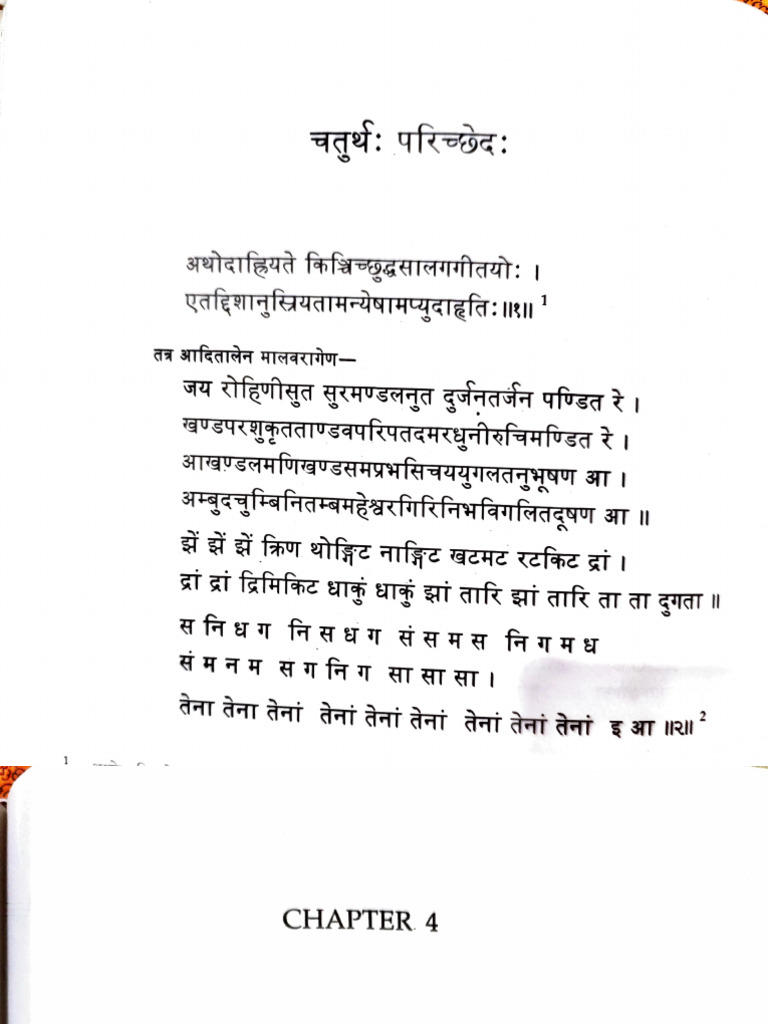 चतुर्थः परिच्छेदः
अथोदाह्रियते किञ्चिच्छुद्धसालगगीतयोः ।
एतद्दिशानुस्रियतामन्येषामप्युदाहृतिः॥१॥ 1
तत्र आदितालेन मालवरागेण—
जय रोहिणीसुत सुरमण्डलनुत दुर्जनतर्जन पण्डित रे ।
खण्डपरशुकृतताण्डवपरिपतदमरधुनीरुचिमण्डित रे ।
आखण्डलमणिखण्डसमप्रभसिचययुगलतनुभूषण आ ।
अम्बुदचुम्बिनितम्बमहेश्वरगिरिनिभविगलितदूषण आ ॥
झें झें झें क्रिण थोङ्गिट नाङ्गिट खटमट रटकिट द्रां ।
द्रां द्रां द्रिमिकिट धाकुं धाकुं झां तारि झां तारि ता ता दुगता ॥
स नि ध ग नि स ध ग सं स म स नि ग म ध
सं म न म स ग नि ग सा सा सा ।
तेना तेना तेनां तेनां तेनां तेनां तेनां तेनां तेनां इ आ ॥२॥ 2
1
CHAPTER 4